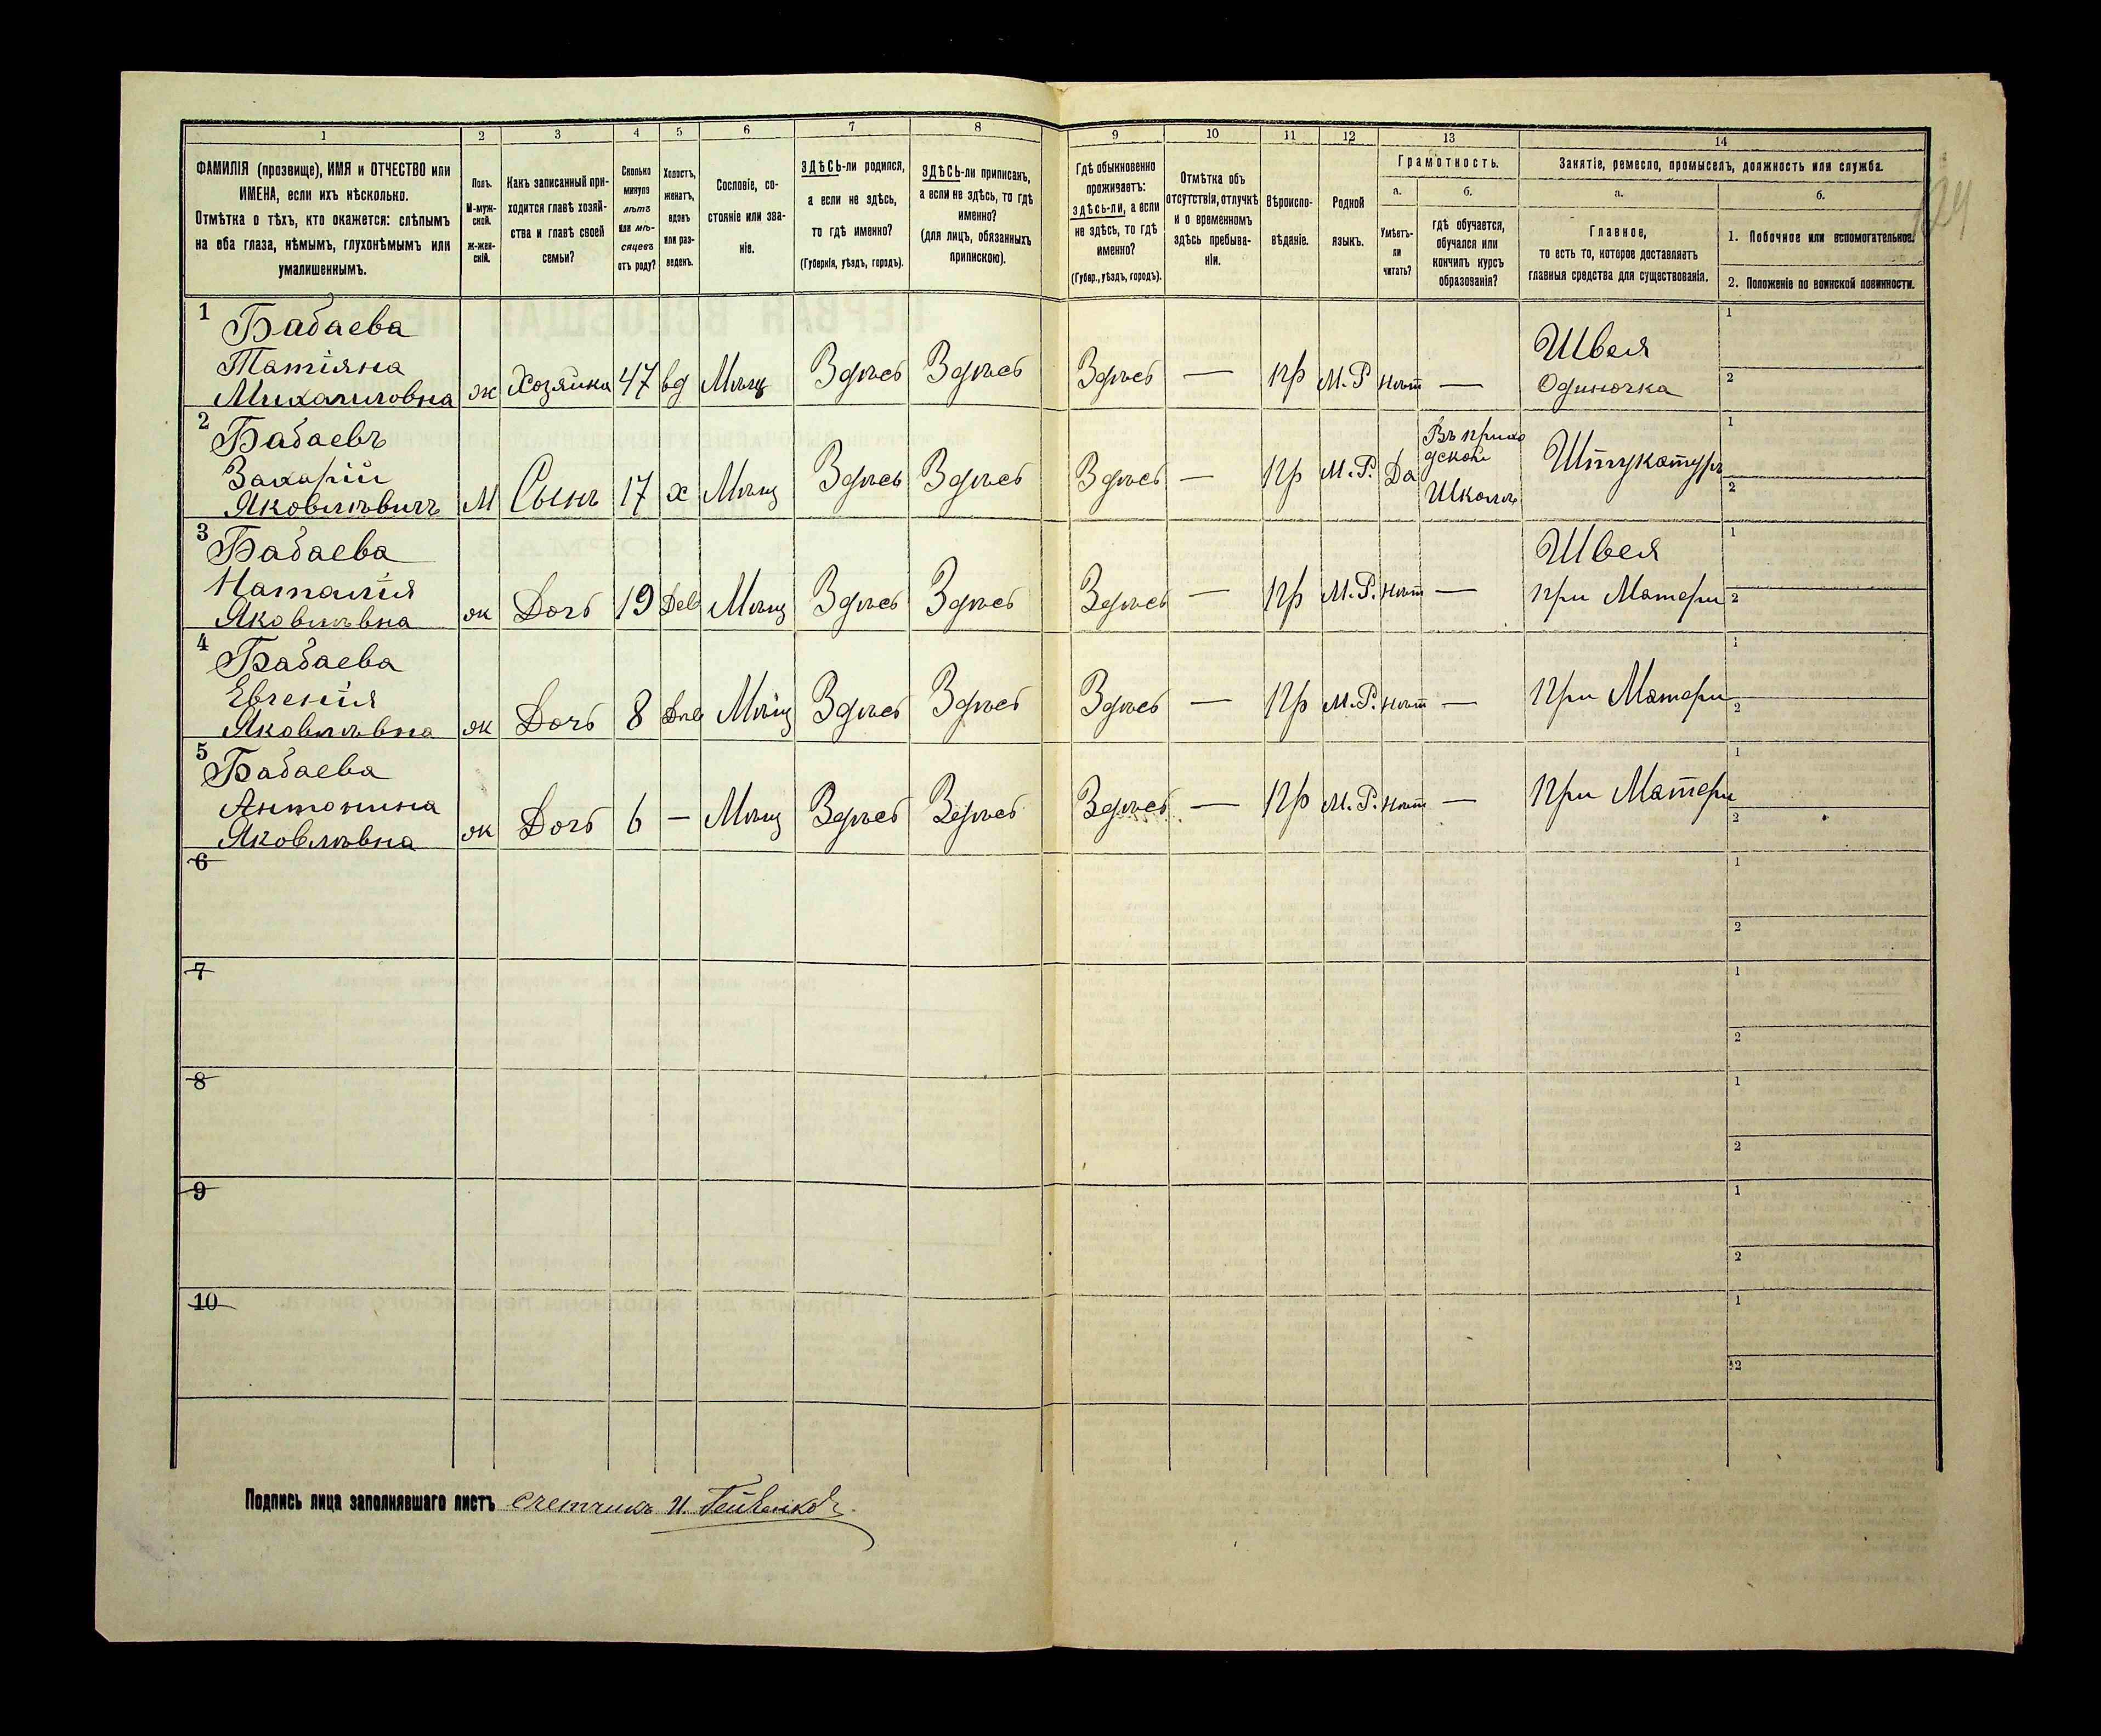 1 2 3 4 5 6 7 8 9 10 11 12 13 14
ФАМИЛІЯ (прозвище), ИМЯ и ОТЧЕСТВО или
ИМЕНА, если ихъ нѣсколько.
Отмѣтка о тѣхъ, кто окажется: слѣпымъ
на оба глаза, нѣмымъ, глухонѣмымъ или
умалишеннымъ.
Полъ.
М-муж-
ской.
Ж-жен-
скій.
Какъ записанный при-
ходится главѣ хозяй-
ства и главѣ своей
семьи?
Сколько
минуло
лѣтъ
или мѣ-
сяцевъ
отъ роду?
Холостъ,
женатъ,
вдовъ
или раз-
веденъ.
Сословіе, со-
стояніе или зва-
ніе.
ЗДѢСЬ-ли родился,
а если не здѣсь,
то гдѣ именно?
(Губернія, уѣздъ, городъ).
ЗДѢСЬ-ли приписанъ,
а если не здѣсь, то гдѣ
именно?
(для лицъ, обязанныхъ
припискою).
Гдѣ обыкновенно
проживаетъ:
здѣсь-ли, а если
не здѣсь, то гдѣ
именно?
(Губер., уѣздъ, городъ).
Отмѣтка объ
отсутствіи, отлучкѣ
и о временномъ
здѣсь пребыва-
ніи.
Вѣроиспо-
вѣданіе.
Родной
языкъ.
Грамотность.
а.
Умѣетъ-
ли
читать?
б.
гдѣ обучается,
обучался или
кончилъ курсъ
образованія?
Занятіе, ремесло, промыселъ, должность или служба.
а.
Главное,
то есть то, которое доставляетъ
главныя средства для существованія.
б.
1. Побочное или вспомогательное.
2. Положеніе по воинской повинности.
124
1 Бабаева
Татіяна
Михаиловна ж Хозяйка 47 вд Мѣщ Здѣсь Здѣсь Здѣсь — пр М.Р нѣт — Швея
Одиночка
1
2
2 Бабаевъ
Захарій
Яковлѣвичъ М Сынъ 17 х Мѣщ Здѣсь Здѣсь Здѣсь — пр М.Р. Да Въ прихо
дской
Школѣ Штукатуръ
1
2
3 Бабаева
Наталія
Яковлѣвна ж Дочь 19 Дев Мѣщ Здѣсь Здѣсь Здѣсь — пр М.Р. нѣт — Швея
при Матери
1
2
4 Бабаева
Евгенія
Яковлѣвна ж Дочь 8 Дѣв Мѣщ Здѣсь Здѣсь Здѣсь — пр М.Р. нѣт — при Матери
1
2
5 Бабаева
Антонина
Яковлѣвна ж Дочь 6 — Мѣщ Здѣсь Здѣсь Здѣсь — пр М.Р. нѣт — при Матери
1
2
6
1
2
7
1
2
8
1
2
9
1
2
10
1
2
Подпись лица заполнявшаго листъ счетчикъ И.